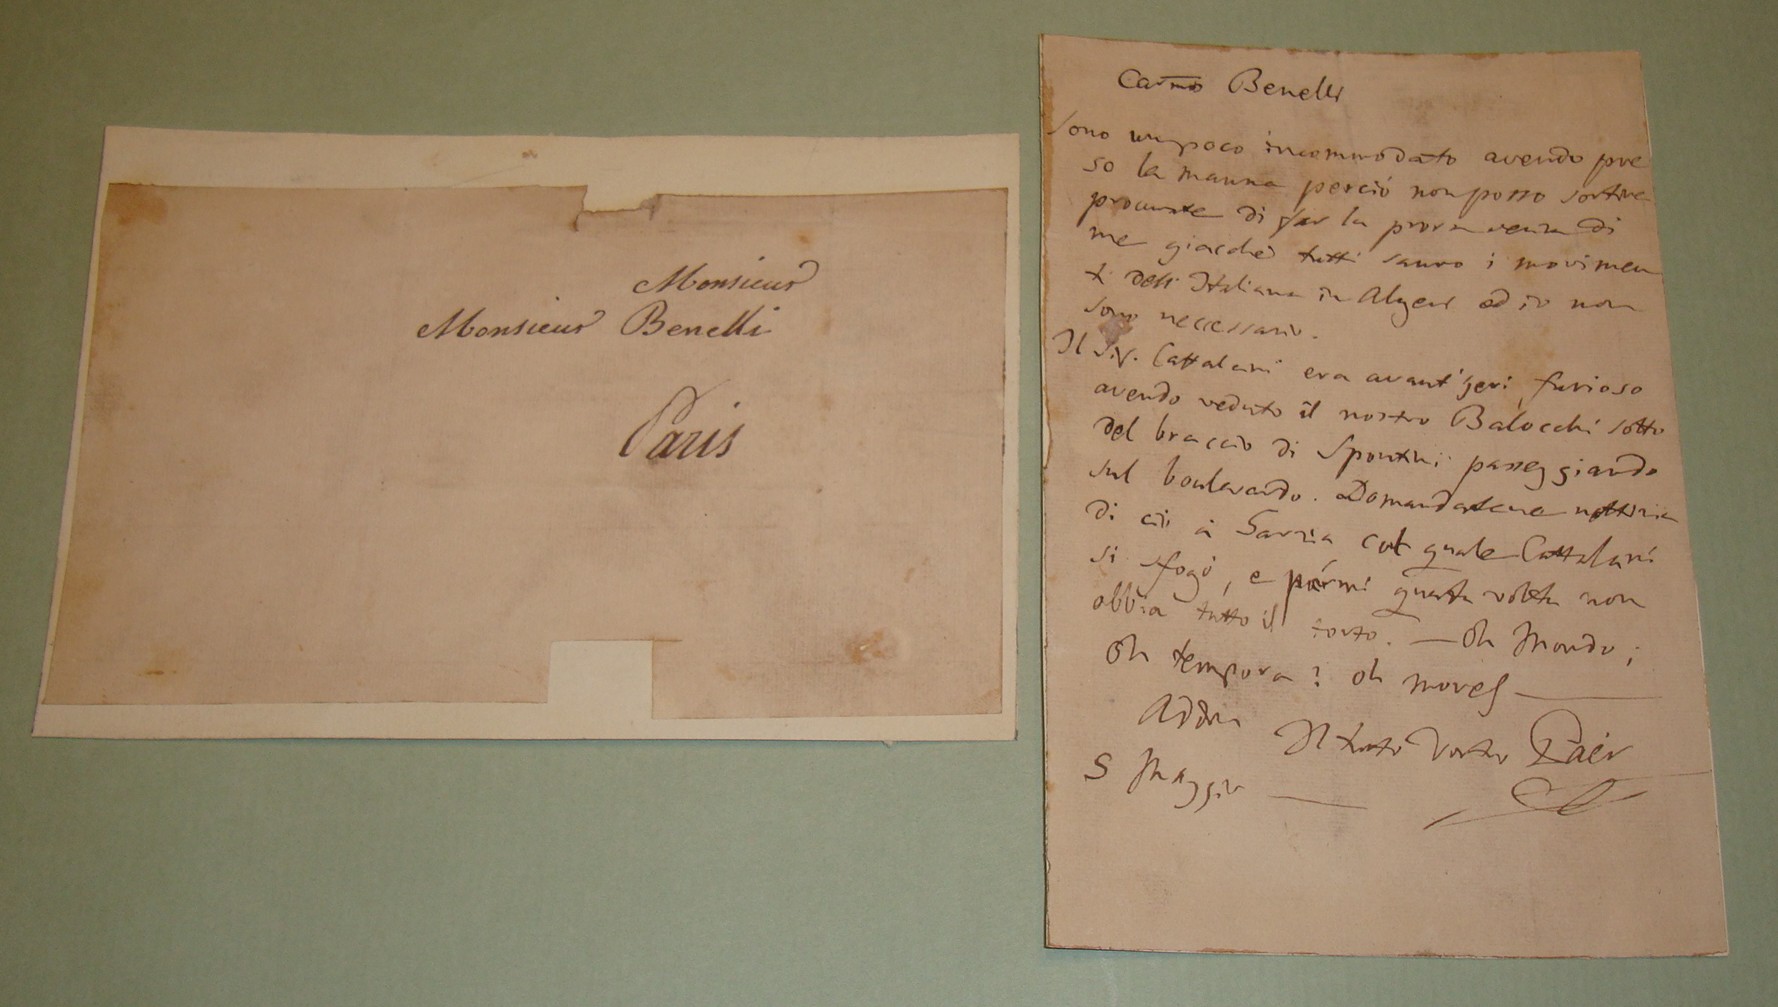 Monsieur
Monsieur Benelli
Paris
Carmo Benelli
Sono un poco incommodato avendo pre
so la manna perciò non posso sortire
procurate di far la prova senza di
me giacchè tutti sanno i movimen
ti dell'Italiana in Algeri ed io non
sono neccessario.
Il Sigr. Cattalani era avant'jeri furioso
avendo veduto il nostro Balocchi sotto
del braccio di Spontini passeggiando
sul boulevardo. Domandatene nottizia
di ciò a Garzia col quale Cattalani
si sfogò, e parmi questa volta non
abbia tutto il torto. — Oh Mondo;
Oh tempora? oh mores —
Addio Il tutto Vostro Paër
5 Maggio —